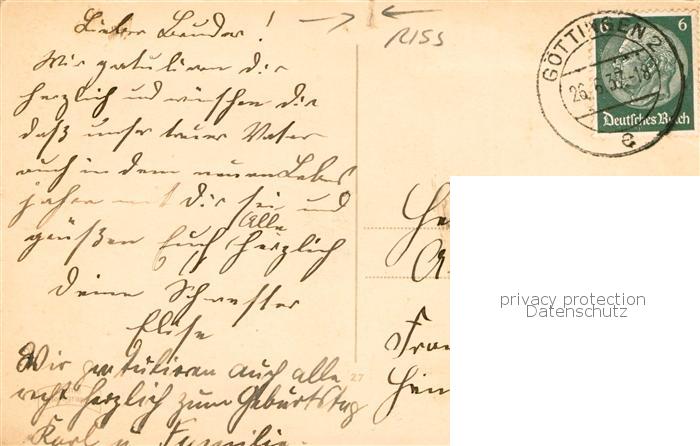 Lieber Bruder!
RISS
Wir gratulieren dir
herzlich und wünschen dir
daß unser treuer Vater
auch in dem neuen Lebens
jahre mit Dir sei und
grüßen Euch Alle herzlich
Deine Schwester
Elise
Wir gratulieren auch alle
recht herzlich zum Geburtstag
Karl u. Familie.
27
GÖTTINGEN 2
26.6.35.-18
e
6
Deutsches Reich
privacy protection
Datenschutz